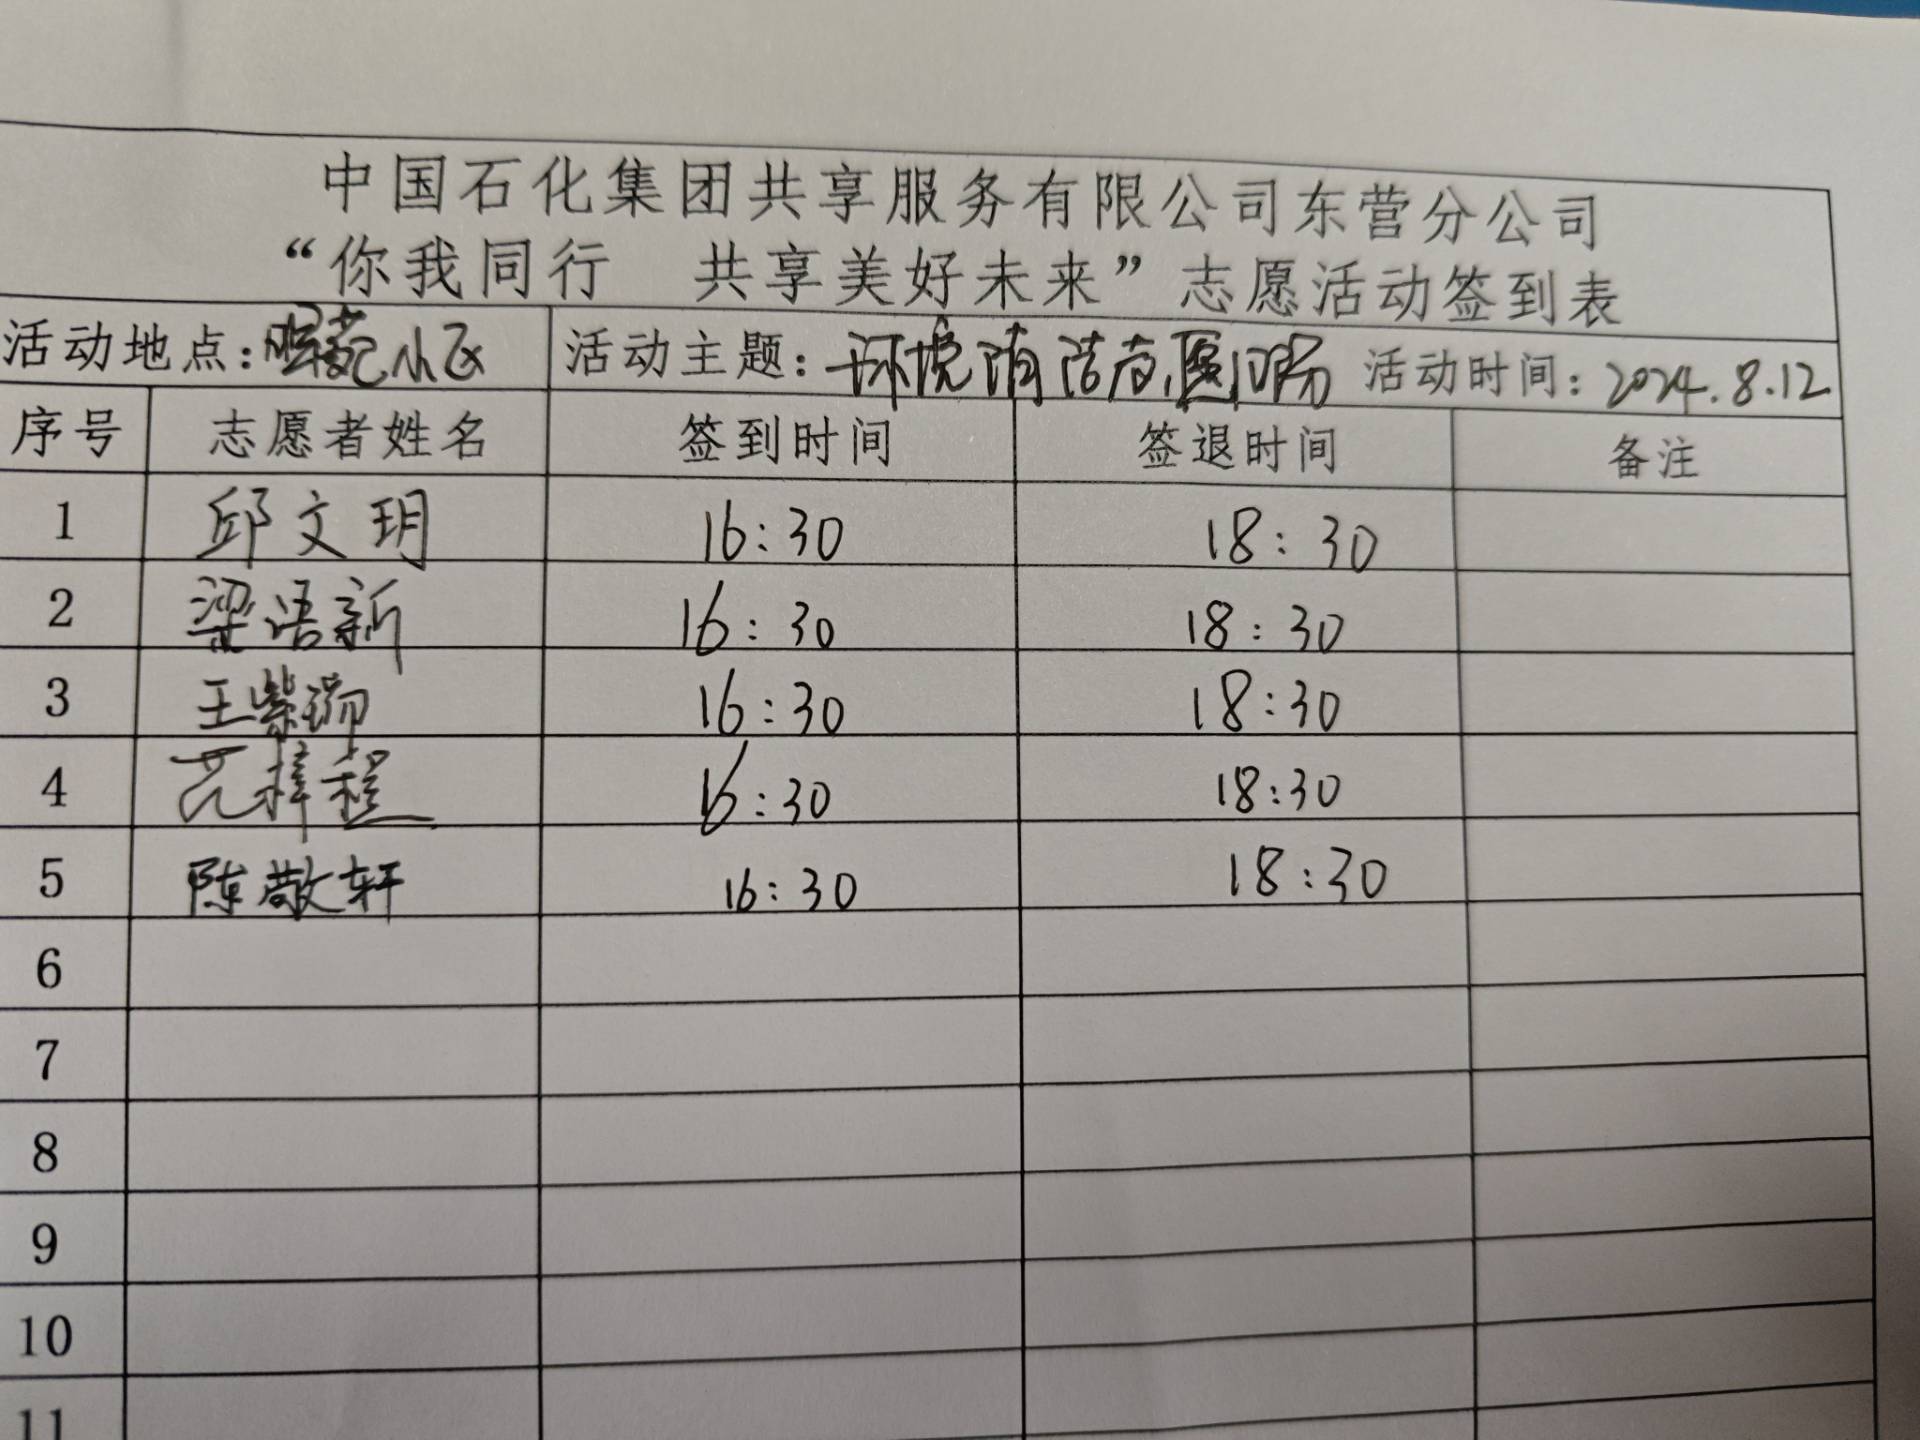 中国石化集团共享服务有限公司东营分公司
“你我同行 共享美好未来”志愿活动签到表
活动地点：苑小区 活动主题：环境清洁 活动时间：2024.8.12
序号 志愿者姓名 签到时间 签退时间 备注
1 邱文玥 16:30 18:30
2 梁语新 16:30 18:30
3 王紫瑞 16:30 18:30
4 范梓程 16:30 18:30
5 陈敬轩 16:30 18:30
6
7
8
9
10
11